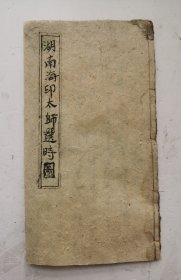 湖南海印太師選時圖